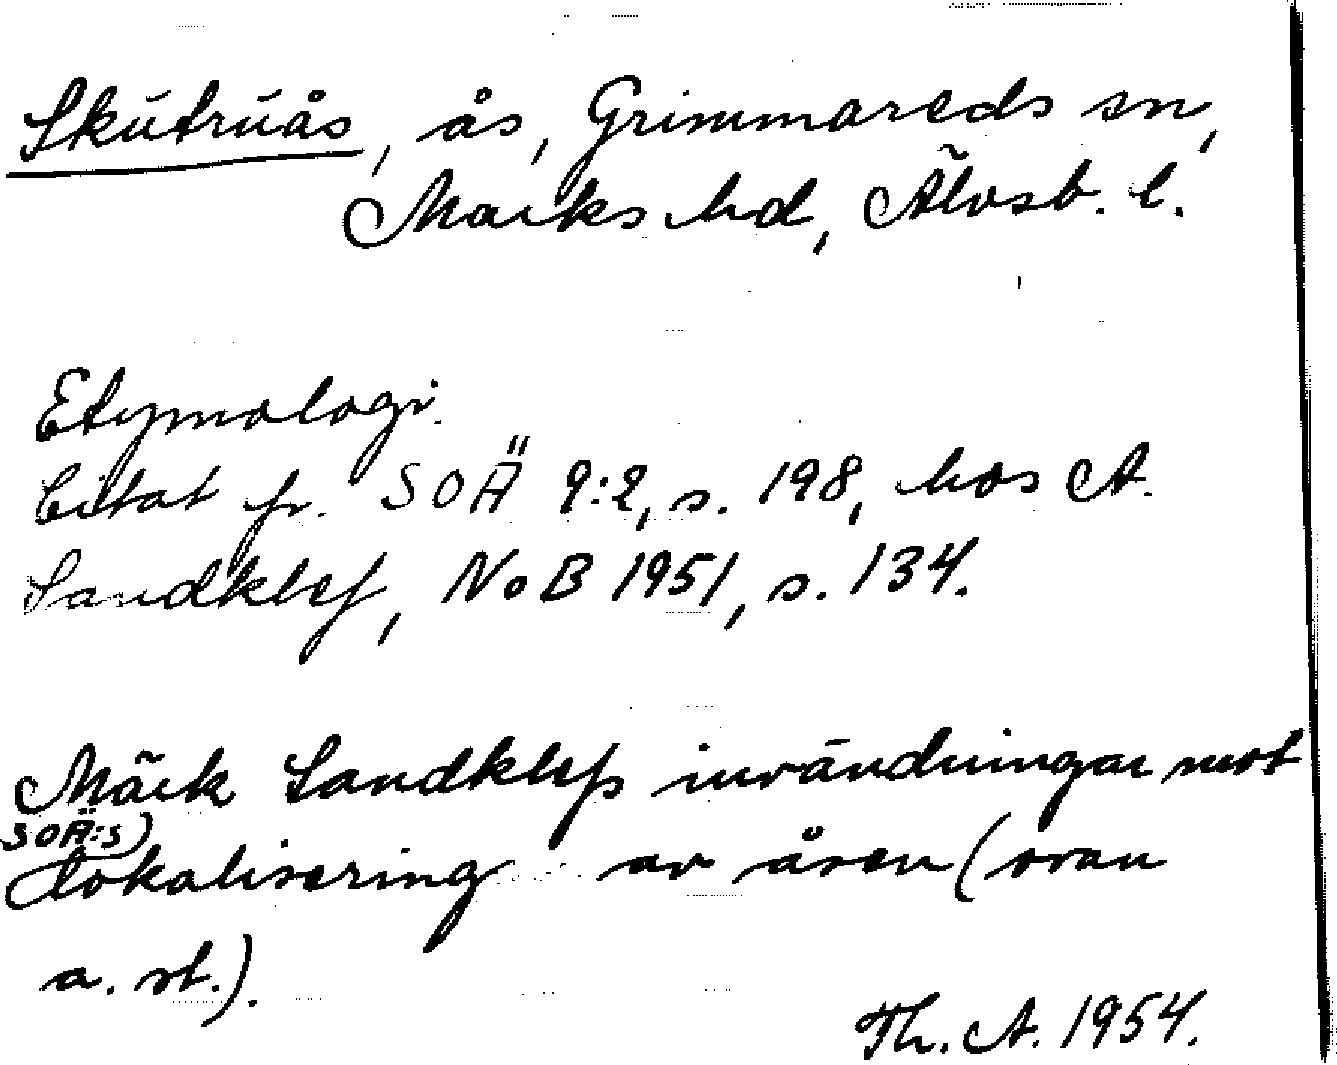 Skutruås, ås, Grimmareds sn,
Marks hd, Älvsb. l.
Etymologi.
Citat fr. SOÄ 9:2, s. 198, hos A.
Sandklef, NoB 1951, s. 134.
Märk Sandklefs invändningar mot
SOÄ:s)
lokalisering av åsen (ovan
a. st.).
Th. A. 1954.